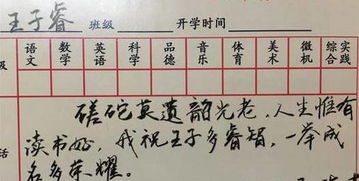 王子睿 班级 开学时间
级 语文 数学 英语 科学 品德 音乐 体育 美术 微机 综合实践
磋砣莫遗韶光老,人生惟有
读书好,我祝王子多睿智,一举成
名多荣耀。
话